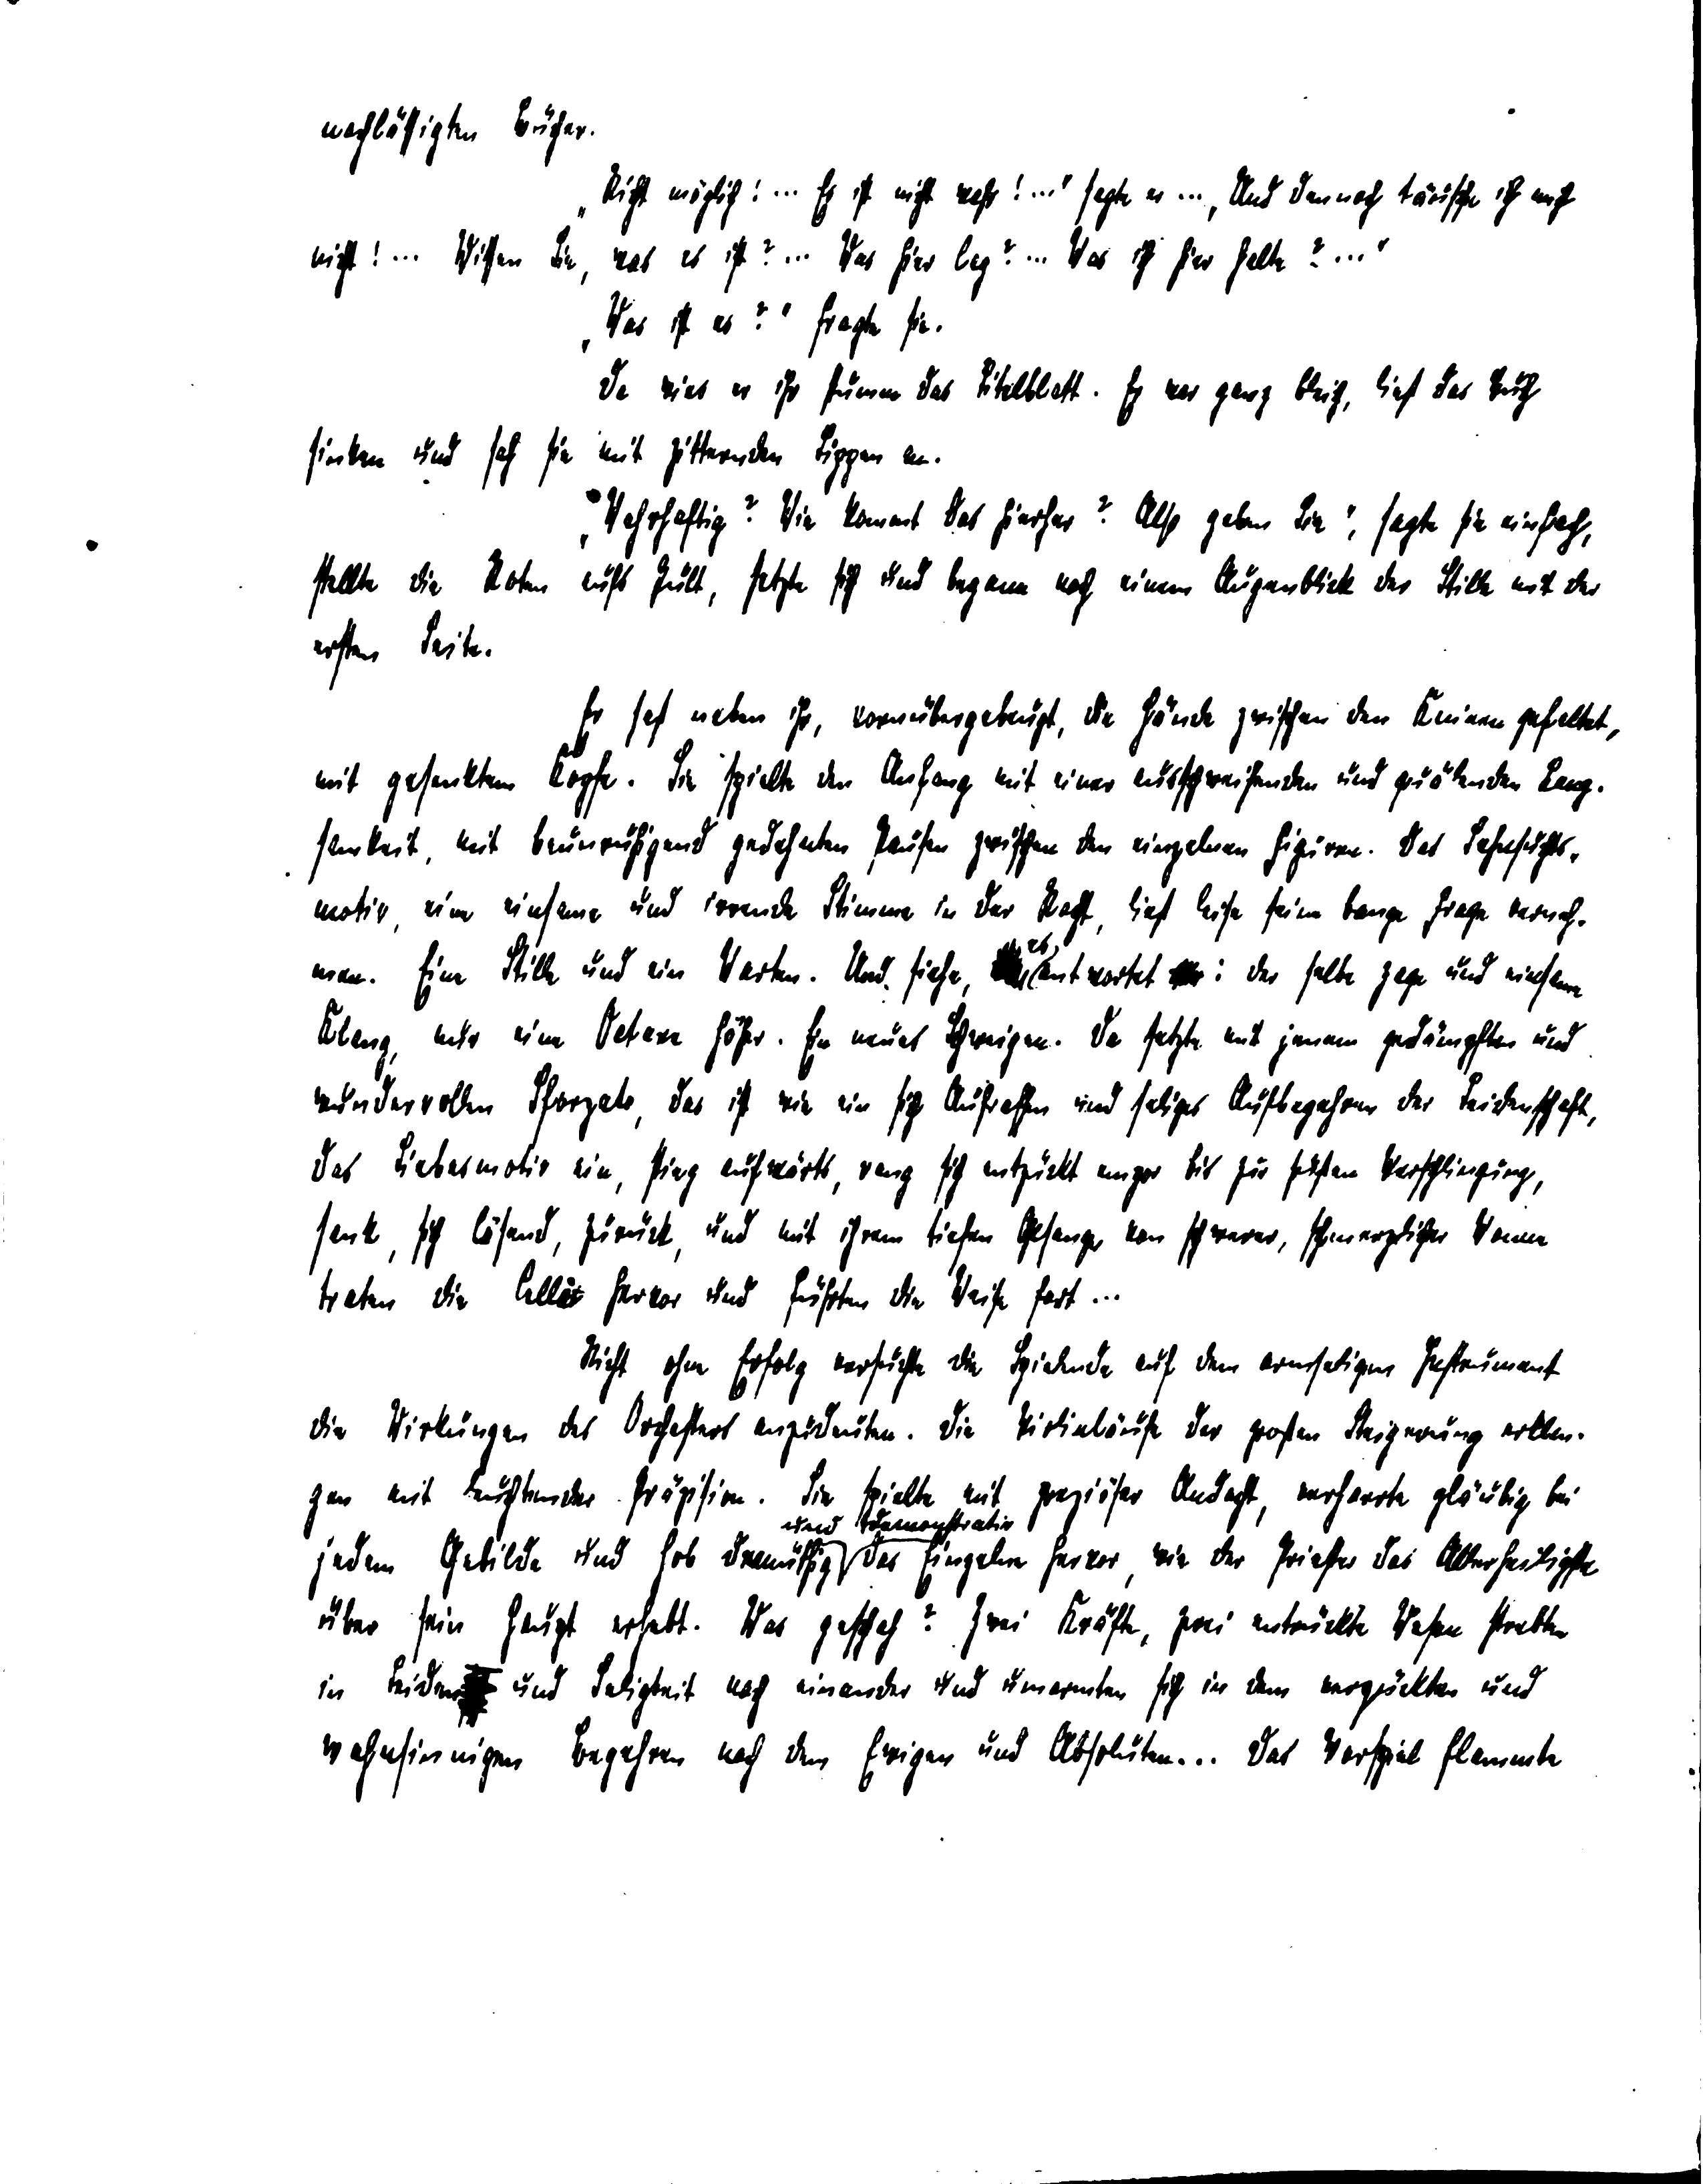 nachlässigten Bücher.
„Nicht möglich! ... Es ist nicht wahr! ...“ sagte er ... „Und dennoch täusche ich mich
nicht! ... Wissen Sie, was es ist? ... Was hier lag? ... Was ich hier halte? ...“
„Was ist es?“ fragte sie.
Da wies er ihr stumm das Titelblatt. Er war ganz bleich, ließ das Buch
sinken und sah sie mit zitternden Lippen an.
„Wahrhaftig? Wie kommt das hierher? Also geben Sie“, sagte sie einfach,
stellte die Noten aufs Pult, setzte sich und begann nach einem Augenblick der Stille mit der
ersten Seite.
Er saß neben ihr, vornübergebeugt, die Hände zwischen den Knieen gefaltet,
mit gesenktem Kopfe. Sie spielte den Anfang mit einer ausschweifenden und quälenden Lang-
samkeit, mit beunruhigend gedehnten Pausen zwischen den einzelnen Figuren. Das Sehnsuchts-
motiv, eine einsame und irrende Stimme in der Nacht, ließ leise seine bange Frage verneh-
men. Eine Stille und ein Warten. Und siehe, es antwortet: der selbe zage und einsame
Klang, nur eine Octave höher. Ein neues Schweigen. Da setzte mit jenem gedämpften und
wundervollen Sforzato, das ist wie ein sich Aufraffen und seliges Aufbegehren der Leidenschaft,
das Liebesmotiv ein, stieg aufwärts, rang sich entzückt empor bis zur süßen Verschlingung,
sank, sich lösend, zurück, und mit ihrem tiefen Gesange von schwerer, schmerzlicher Wonne
traten die Celli hervor und führten die Weise fort ...
Nicht ohne Erfolg versuchte die Spielende auf dem armseligen Instrument
die Wirkungen des Orchesters anzudeuten. Die Violinläufe der großen Steigerung erklan-
gen mit leuchtender Präzision. Sie spielte mit preziöser Andacht, verharrte gläubig bei
und demonstrativ
jedem Gebilde und hob demüthig das Einzelne hervor, wie der Priester das Allerheiligste
über sein Haupt erhebt. Was geschah? Zwei Kräfte, zwei entrückte Wesen strebten
in Leiden und Seligkeit nach einander und umarmten sich in dem verzückten und
wahnsinnigen Begehren nach dem Ewigen und Absoluten... Das Vorspiel flammte